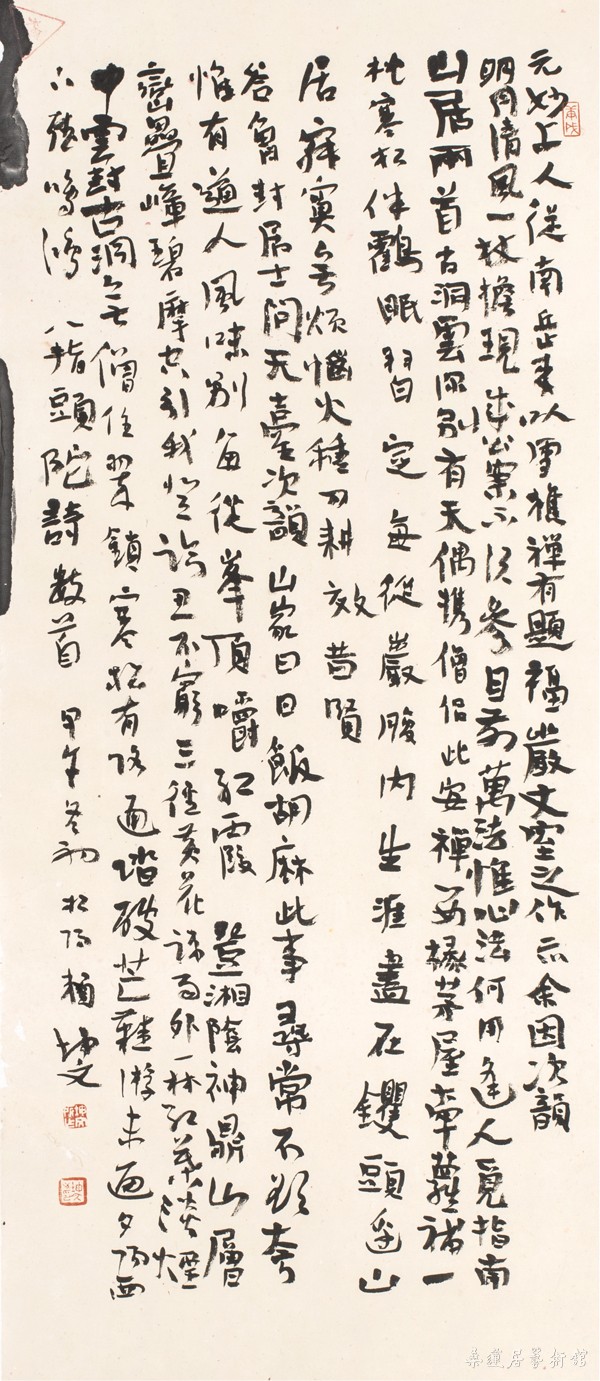 元妙上人從南岳來以雪樵禪有題福嚴文室之作示余因次韻
明月清風一杖擔現成公案不須參目前萬法惟心法何用逢人覓指南
山居兩首古洞雲深別有天偶攜僧侶此安禪安椽茅屋牽蘿補一
枕寒松伴鶴眠習定每從巖腹內生涯盡在钁頭邊山
居寂寞無煩惱火種刀耕效昔賢
答魯封居士問天臺次韻山家日日飯胡麻此事尋常不欲夸
惟有道人風味別每從峯頂嚼紅霞 登湘陰神鼎山層
巒疊嶂碧摩空引我登臨思不窮三徑黃花疎雨外一林紅葉淡煙
中雲封古洞無僧住翠鎖寒松有路通踏破芒鞋游未遍夕陽西
下聽鳴鴻 八指頭陀詩數首 甲午冬初 於陽楠 坤文
桑蓮居藝術館